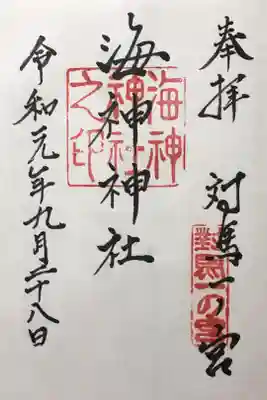 奉拝 対馬一の宮
海神神社
令和元年九月二十八日
海神
神社
之印
對馬一の宮